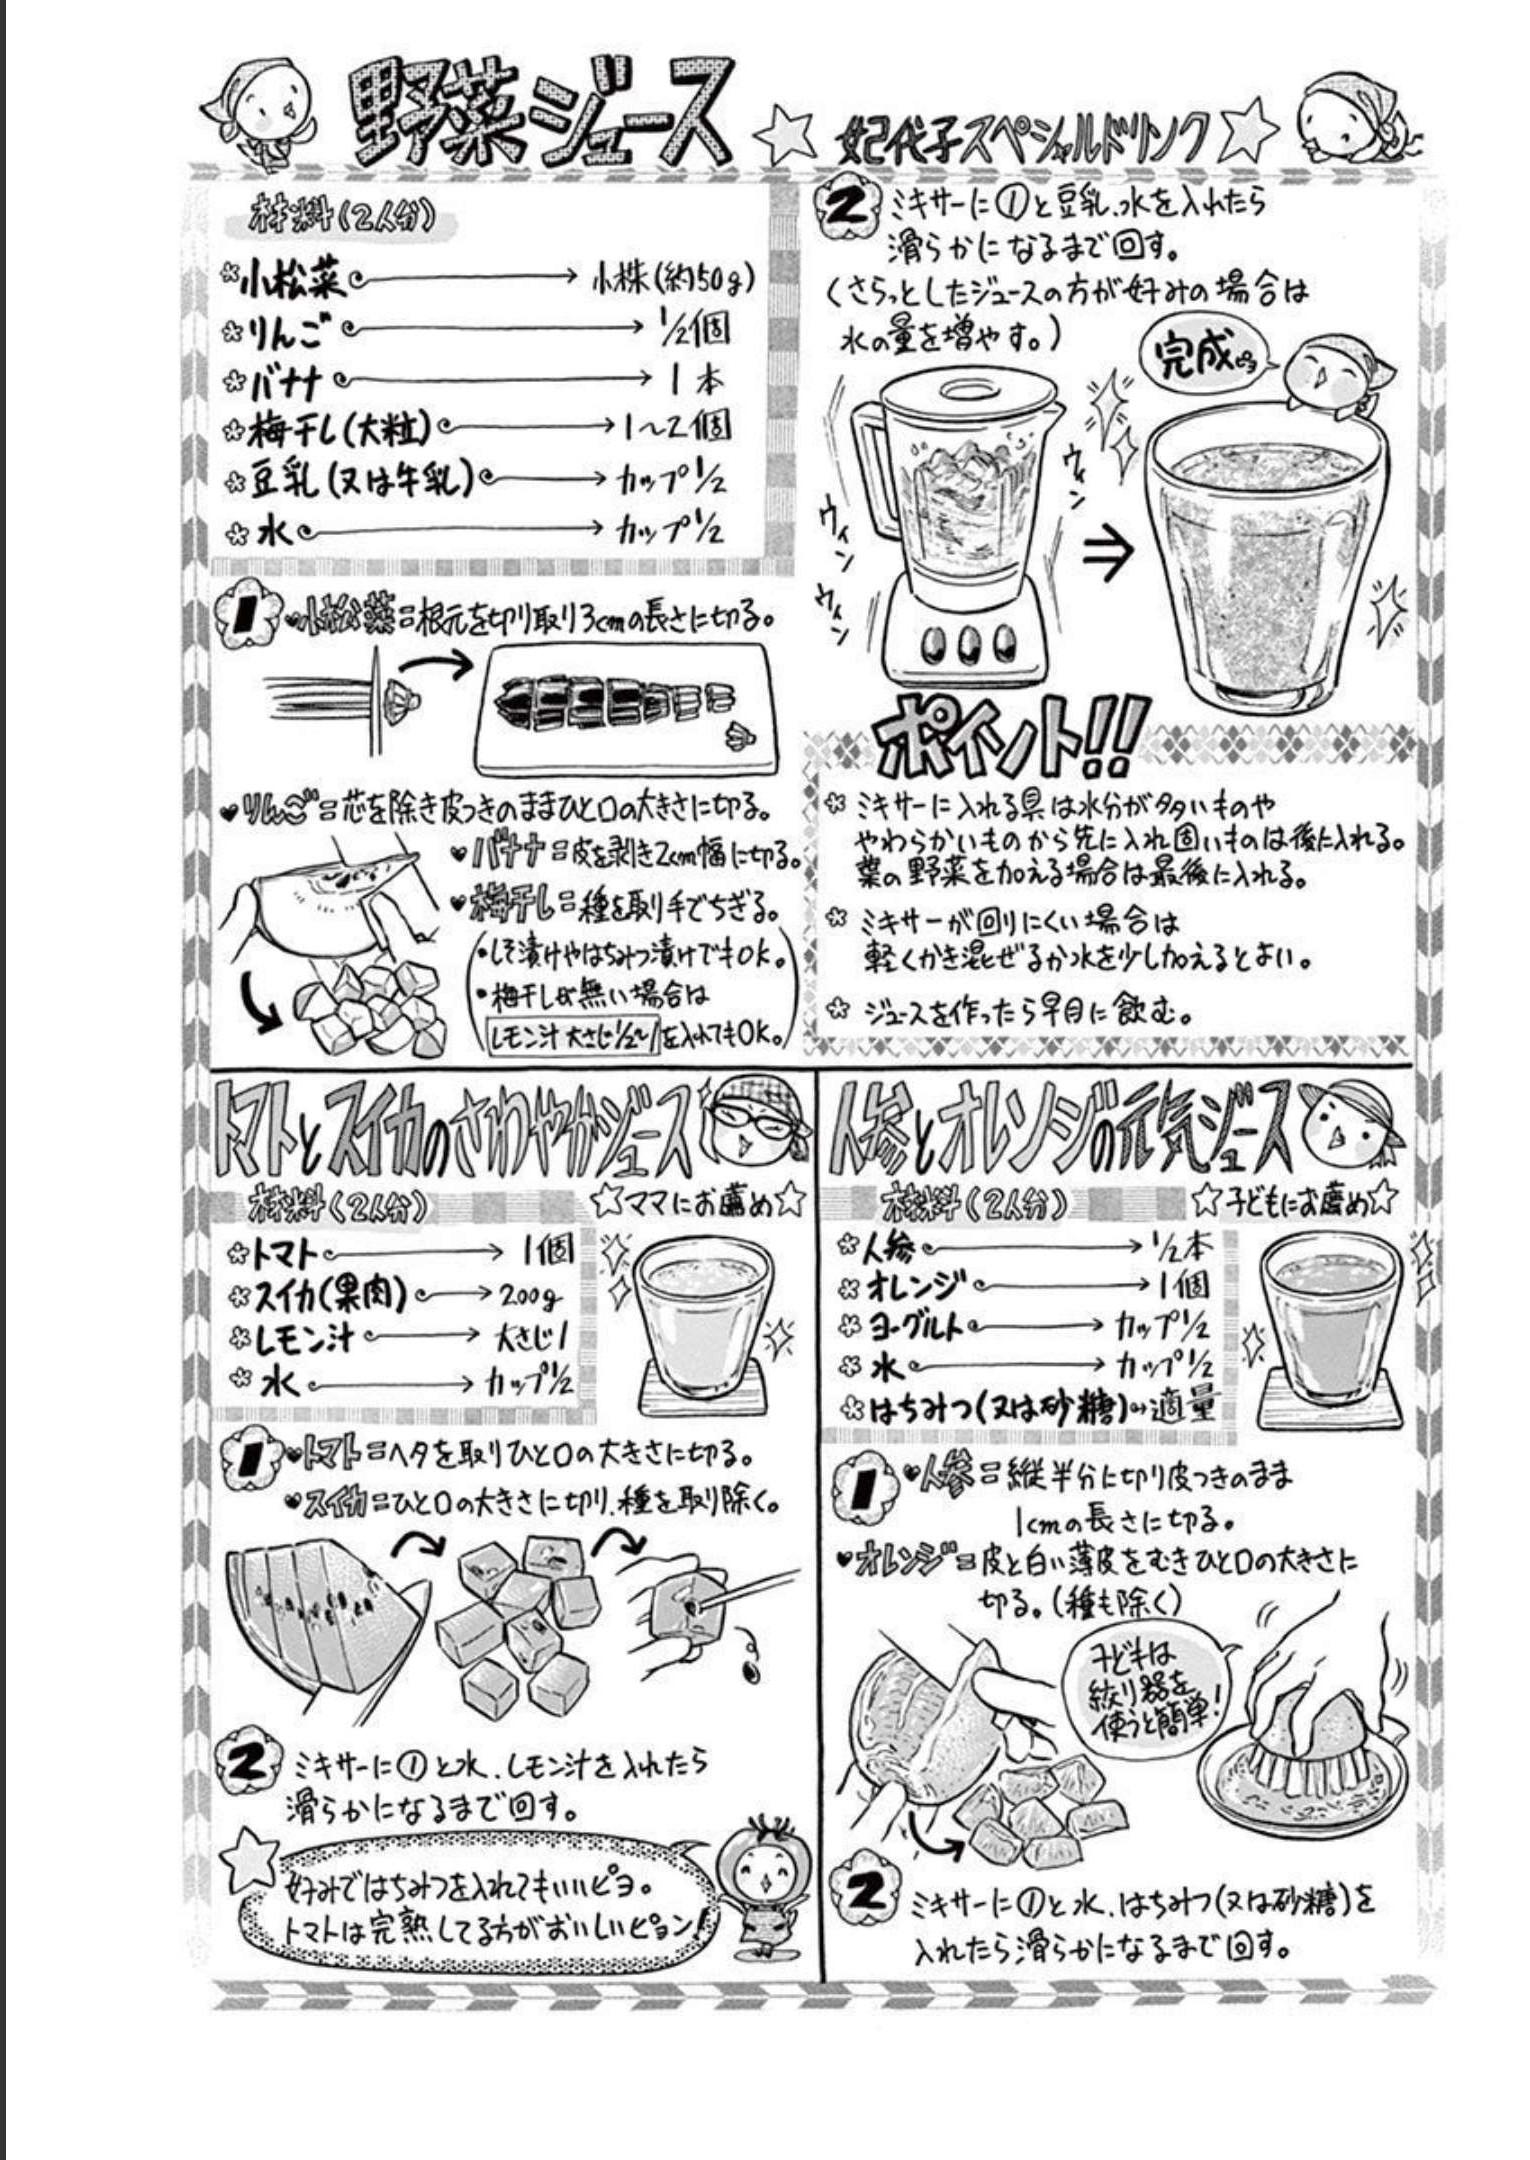 野菜ジュース
☆妃代子スペシャルドリンク☆
材料(2人分)
*小松菜→小1株(約50g)
*りんご→1/2個
*バナナ→1本
*梅干し(大粒)→1〜2個
*豆乳(又は牛乳)→カップ1/2
*水→カップ1/2
1 ♥小松菜=根元を切り取り3cmの長さに切る。
♥りんご=芯を除き皮つきのままひと口の大きさに切る。
♥バナナ=皮を剥き2cm幅に切る。
♥梅干し=種を取り手でちぎる。
(・しそ漬けやはちみつ漬けでもOK。
・梅干しが無い場合は
レモン汁大さじ1/2〜1を入れてもOK。)
2 ミキサーに①と豆乳、水を入れたら
滑らかになるまで回す。
(さらっとしたジュースの方が好みの場合は
水の量を増やす。)
完成ピヨ
ウィン
ウィン
ウィン
⇒
ポイント!!
*ミキサーに入れる具は水分が多いものや
やわらかいものから先に入れ固いものは後に入れる。
葉の野菜を加える場合は最後に入れる。
*ミキサーが回りにくい場合は
軽くかき混ぜるか水を少し加えるとよい。
*ジュースを作ったら早目に飲む。
トマトとスイカのさわやかジュース
材料(2人分)
☆ママにお薦め☆
*トマト→1個
*スイカ(果肉)→200g
*レモン汁→大さじ1
*水→カップ1/2
1 ♥トマト=ヘタを取りひと口の大きさに切る。
♥スイカ=ひと口の大きさに切り、種を取り除く。
2 ミキサーに①と水、レモン汁を入れたら
滑らかになるまで回す。
☆好みではちみつを入れてもいいピヨ。
トマトは完熟してる方がおいしいピョン!
人参とオレンジの元気ジュース
材料(2人分)
☆子どもにお薦め☆
*人参→1/2本
*オレンジ→1個
*ヨーグルト→カップ1/2
*水→カップ1/2
*はちみつ(又は砂糖)→適量
1 ♥人参=縦半分に切り皮つきのまま
1cmの長さに切る。
♥オレンジ=皮と白い薄皮をむきひと口の大きさに
切る。(種も除く)
子どもは
絞り器を
使うと簡単!
2 ミキサーに①と水、はちみつ(又は砂糖)を
入れたら滑らかになるまで回す。